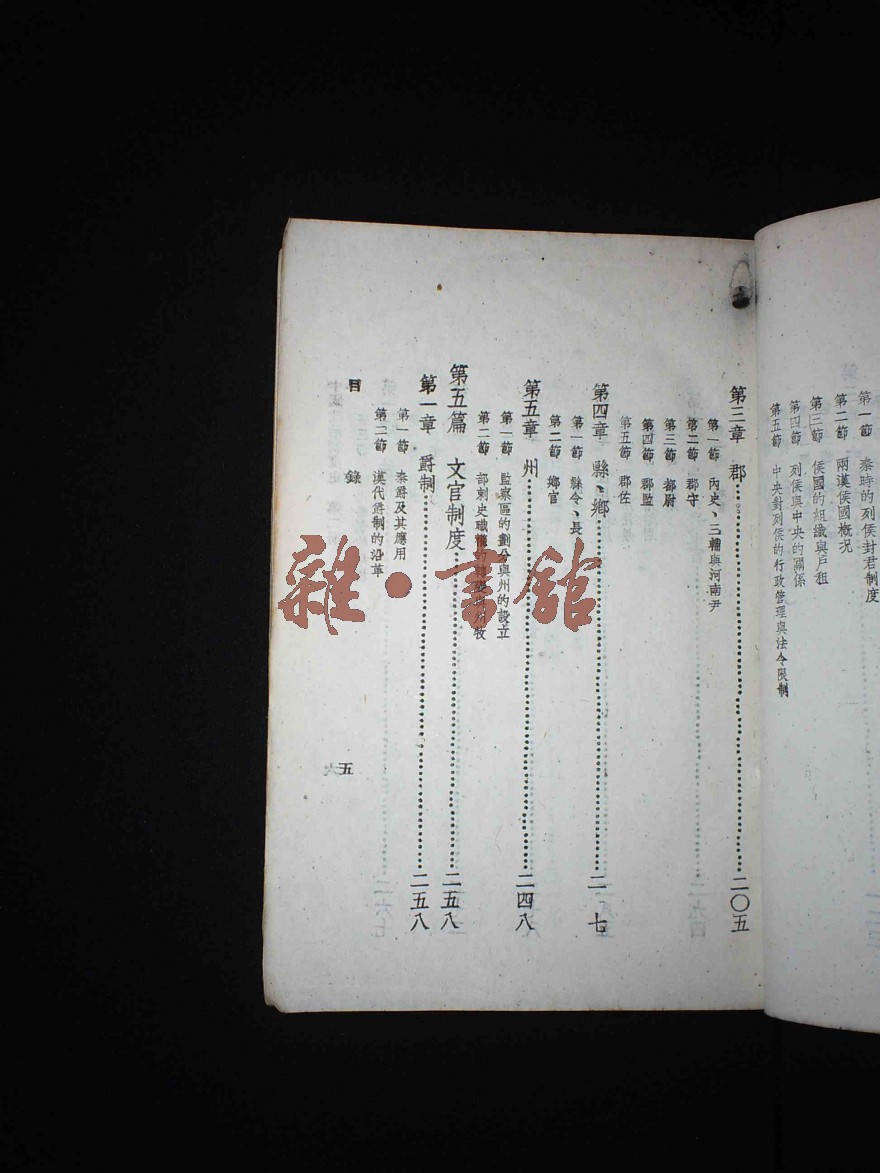 第一節 秦時的列侯封君制度
第二節 兩漢侯國概況
第三節 侯國的組織與戶租
第四節 列侯與中央的關係
第五節 中央對列侯的行政管理與法令限制
第三章 郡……二〇五
第一節 內史、三輔與河南尹
第二節 郡守
第三節 都尉
第四節 郡監
第五節 郡佐
第四章 縣、鄉……二 七
第一節 縣令、長
第二節 鄉官
第五章 州……二四八
第一節 監察區的劃分與州的設立
第二節 部刺史職權的 與州牧
第五篇 文官制度……二五八
第一章 爵制……二五八
第一節 秦爵及其應用
第二節 漢代爵制的沿革
目 錄
五
雜·書館